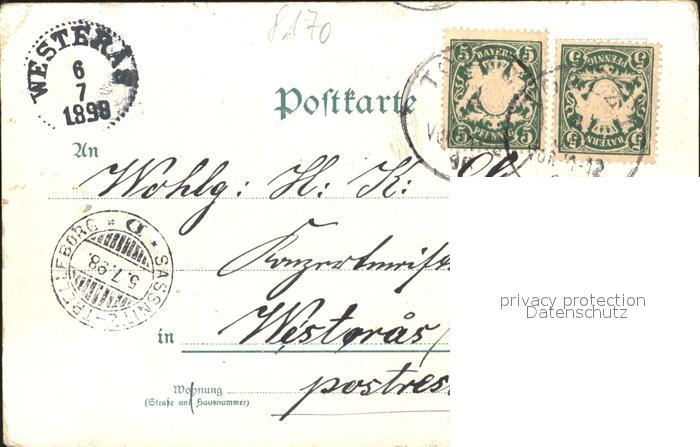 8170
WESTERÅS
6
7
1898
Postkarte
5 BAYERN 5
5 PFENNIG 5
5 BAYERN 5
5 PFENNIG 5
An
Wohlg: H: K:
SASSNITZ-TRELLEBORG
5.7.98
privacy protection
Datenschutz
in Westerås
Wohnung
(Straße und Hausnummer)
postres